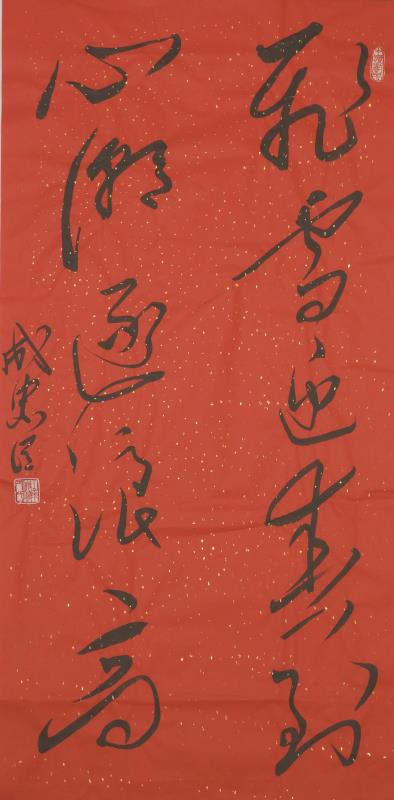 飛雪迎春到
心潮逐浪高
成忠臣